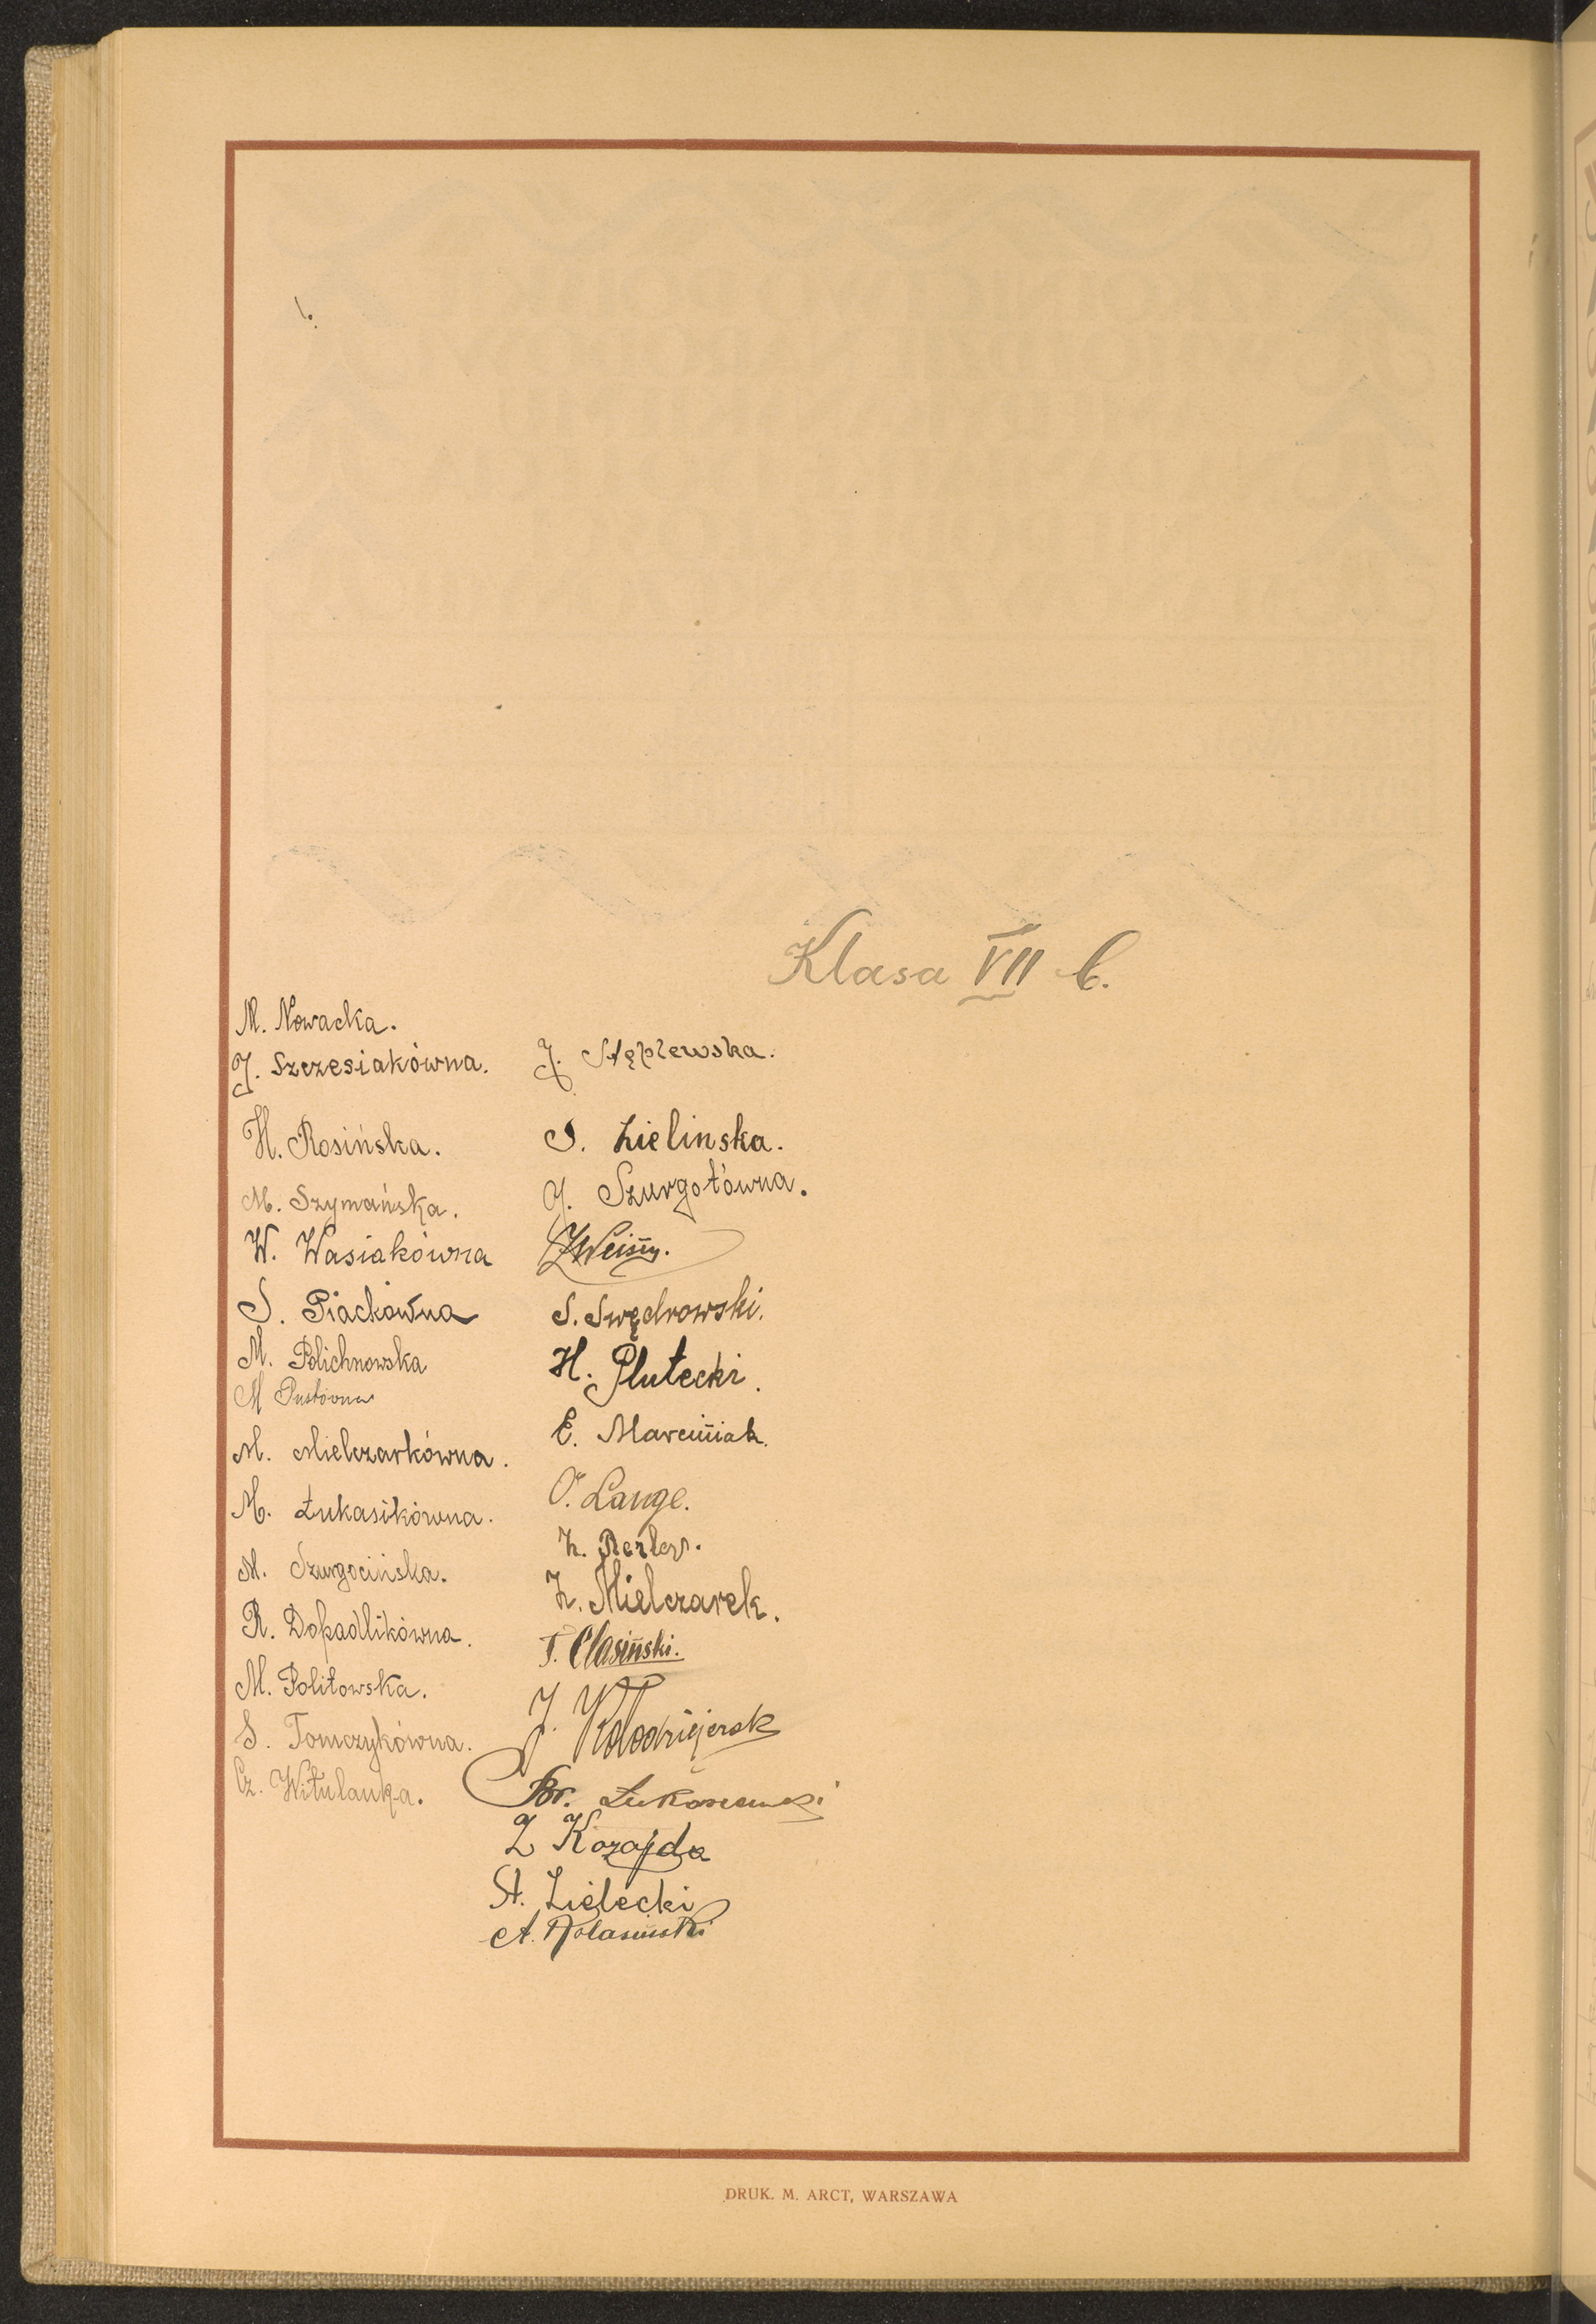 Klasa VII b.
M. Nowacka.
J. Szczesiakówna.
H. Rosińska.
M. Szymańska.
W. Wasiakówna
S. Piachówna
M. Polichnowska
M Pustówna
M. Mielczarkówna.
M. Łukasikówna.
M. Szurgocińska.
R. Dopadlikówna.
M. Politowska.
S. Tomczykówna.
Cz. Witulanka.
J. Stęplewska.
S. Zielinska.
J. Szurgotówna.
S. Swędrowski.
H. Plutecki.
E. Marciniak.
O. Lange.
Z. Mielczarek.
T. Clasiński.
J. Kołodziejersk
Br.
Z Kozajda
St. Zielecki
A. Kolasiński
DRUK. M. ARCT, WARSZAWA